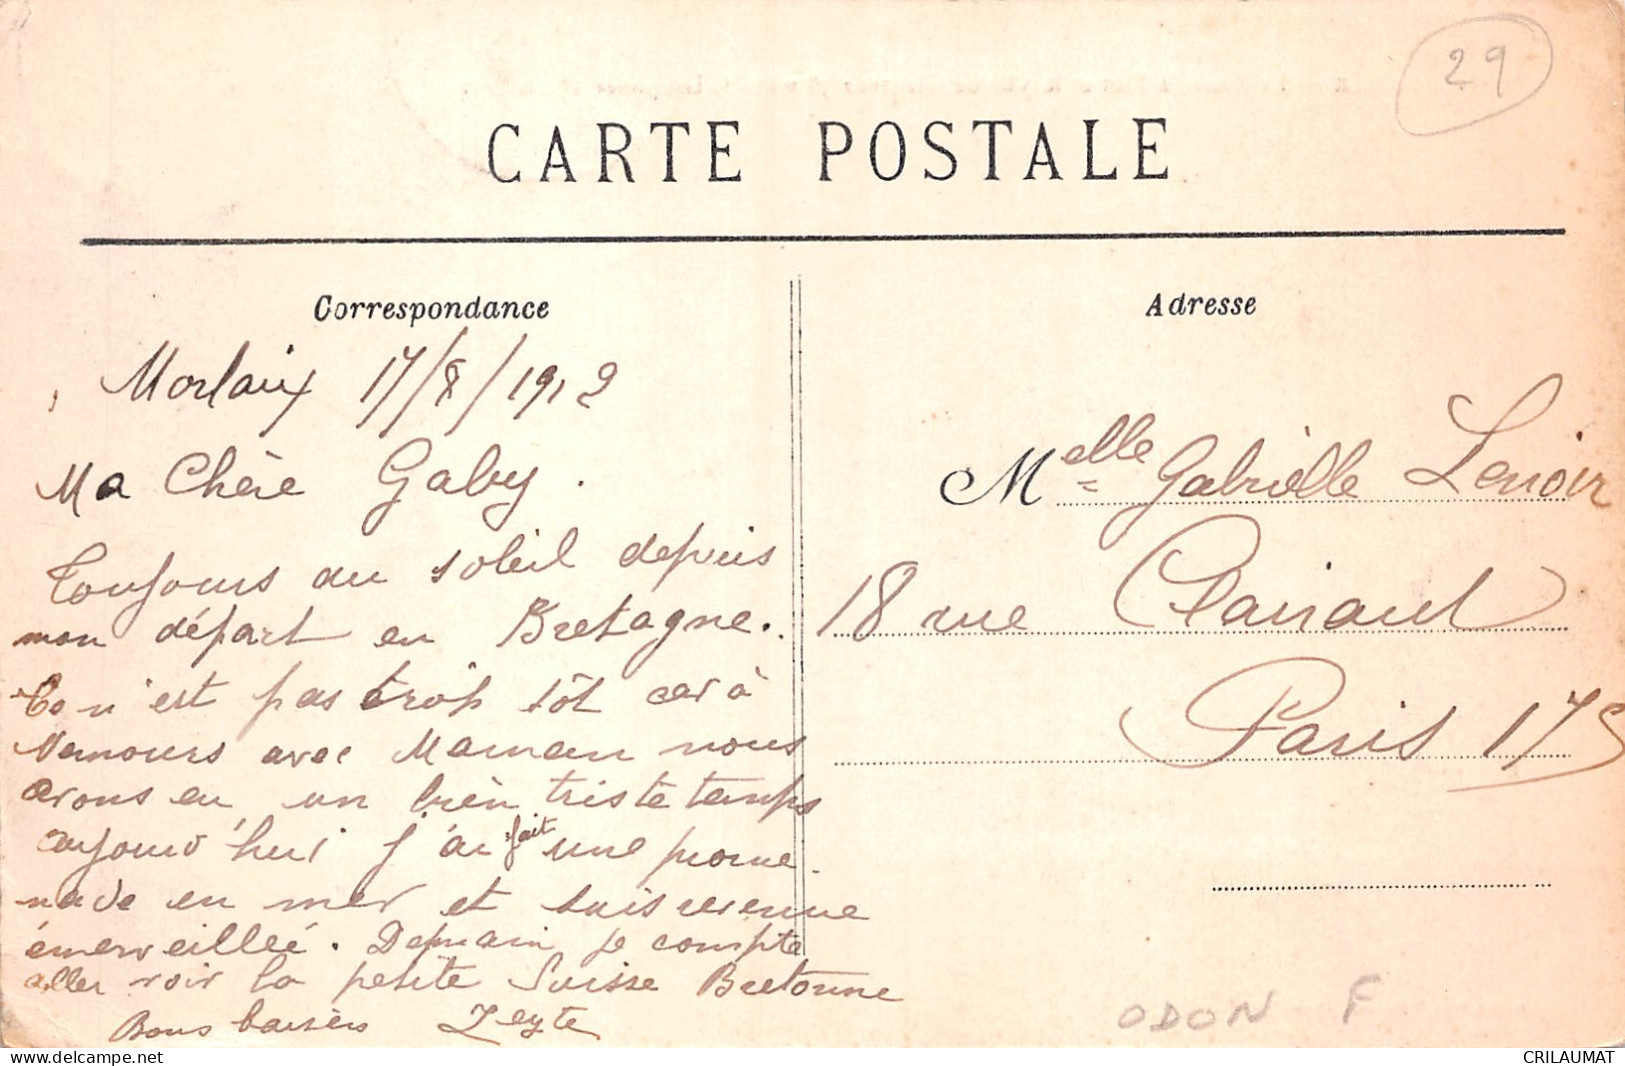 29
CARTE POSTALE
Correspondance
Morlaix 17/8/1912
Ma Chère Gaby.
Toujours au soleil depuis
mon départ en Bretagne.
Ce n'est pas trop tôt car à
Nemours avec Maman nous
avons eu un bien triste temps
aujourd'hui j'ai fait une prome-
nade en mer et suis revenue
émerveillée. Demain je compte
aller voir la petite Suisse Bretonne
Bons baisers
Adresse
Melle Gabrielle Lenoir
18 rue Clairaut
Paris 17e
ODON F
CRILAUMAT
delcampe.net